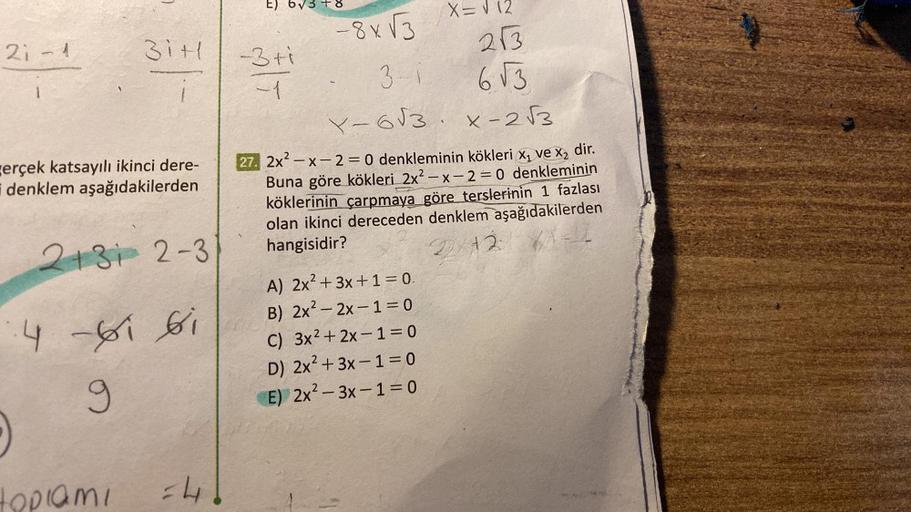 E) 6√3 + 8
-8x√3
x=√12
2√3
6√3
2i-1
i
3i+1
i
-3+i
-1
3-i
x-6√3 . x-2√3
gerçek katsayılı ikinci dere-
denklem aşağıdakilerden
2+3i 2-3
4 -6i 6i
9
toplamı =4
27. 2x² – x – 2 = 0 denkleminin kökleri x₁ ve x₂ dir.
Buna göre kökleri 2x² – x – 2 = 0 denkleminin
köklerinin çarpmaya göre terslerinin 1 fazlası
olan ikinci dereceden denklem aşağıdakilerden
hangisidir?
A) 2x² + 3x + 1 = 0
B) 2x² – 2x – 1 = 0
C) 3x² + 2x – 1 = 0
D) 2x² + 3x – 1 = 0
E) 2x² – 3x – 1 = 0